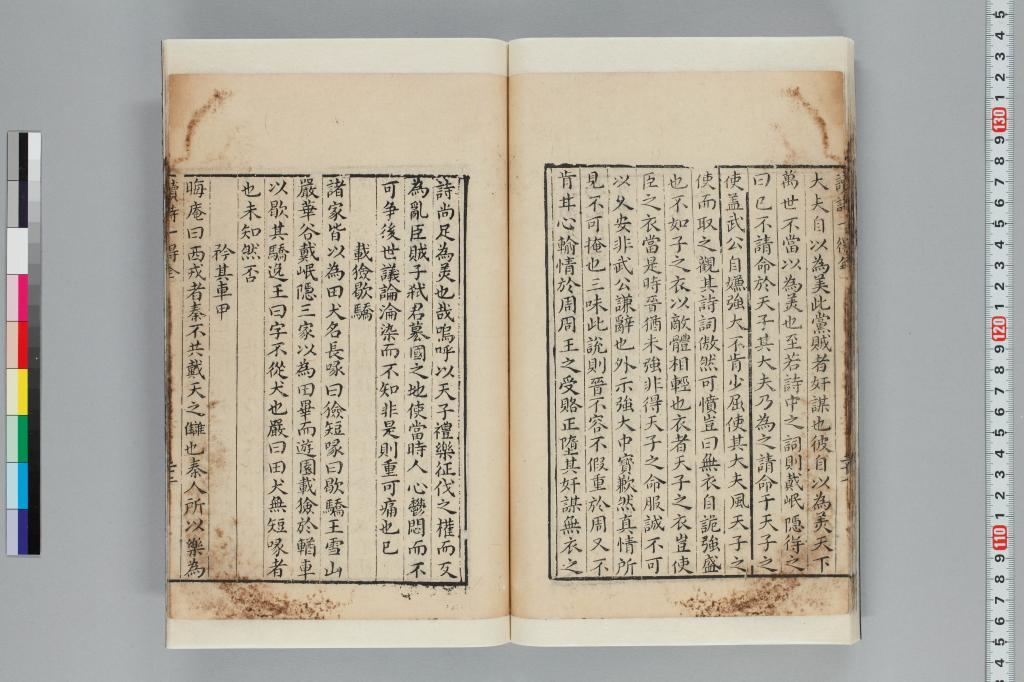 大夫自以為美此黨賊者奸謀也彼自以為美天下
萬世不當以為美也至若詩中之詞則戴岷隱得之
曰已不請命於天子其大夫乃為之請命于天子之
使葢武公自嫌強大不肯少屈使其大夫風天子之
使而取之觀其詩詞傲然可憤豈曰無衣自詭強盛
也不如子之衣以敵體相輕也衣者天子之衣豈使
臣之衣當是時晉猶未強非得天子之命服誠不可
以久安非武公謙辭也外示強大中實歉然真情所
見不可掩也三味此說則晉不容不假重於周又不
肯其心輸情於周周王之受賂正墮其奸謀無衣之
詩尚足為美也哉嗚呼以天子禮樂征伐之權而反
為亂臣賊子弒君簒國之地使當時人心鬱悶而不
可爭後世議論淪染而不知非是則重可痛也已
載獫歇驕
諸家皆以為田犬名長喙曰獫短喙曰歇驕王雪山
嚴華谷戴岷隱三家以為田畢而遊園載獫於輶車
以歇其驕逞王曰字不從犬也嚴曰田犬無短喙者
也未知然否
矜其車甲
晦庵曰西戎者秦不共戴天之讎也秦人所以樂為
讀詩一得全